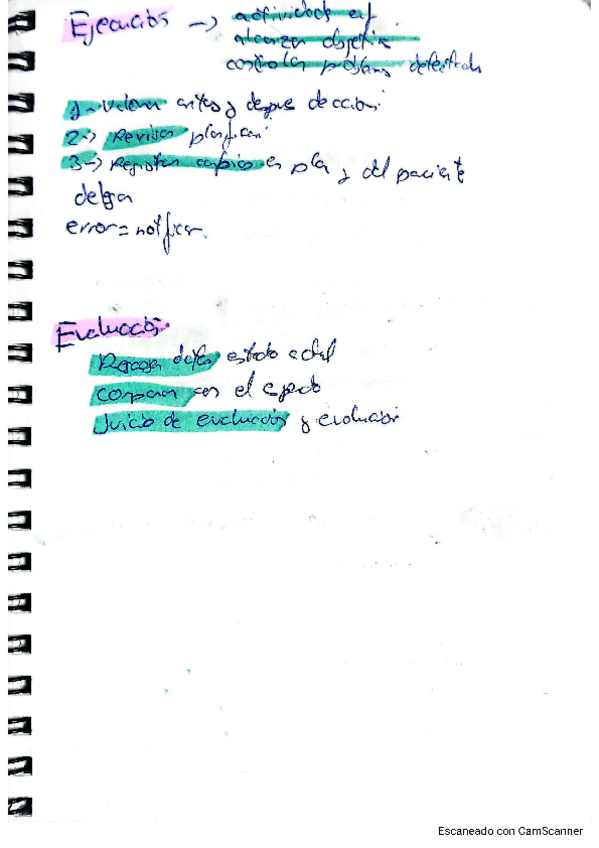 Ejecución -> actividades enf
alcanzar objetivos
controlar problemas detectados
1-> Valorar antes y despues de accion
2-> Revisar planificaci
3-> Registrar cambios en plan y del paciente
delegar
error = notificar.
Evaluación.
Recoger datos estado actual
comparar con el esperado
Juicio de evaluación y evolución
Escaneado con CamScanner